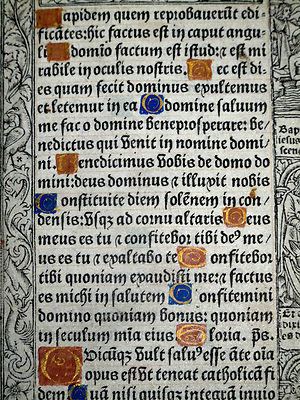 Lapidem quem reprobauerũt edi-
ficãtes: hic factus est in caput angu-
li A domĩo factum est istud: ⁊ est mi
rabile in oculis nostris. Hec est di-
es quam fecit dominus exultemus
et letemur in ea O domine saluum
me fac o domine bene prosperare: be-
nedictus qui venit in nomine domi
ni. Benedicimus vobis de domo do
mini: deus dominus ⁊ illuxit nobis
Constituite diem solẽnem in con/
densis: vsqꝫ ad cornu altaris Deus
meus es tu ⁊ confitebor tibi de⁹ me/
us es tu ⁊ exaltabo te Confitebor
tibi quoniam exaudisti me: ⁊ factus
es michi in salutem Confitemini
domino quoniam bonus: quoniam
in seculum mĩa eius Gloria. p̃s.
Quicũqꝫ vult saluꝰ esse ãte oĩa
opus est vt teneat catholicã fi
dem Quã nisi quisqꝫ integrã inuio
Bap